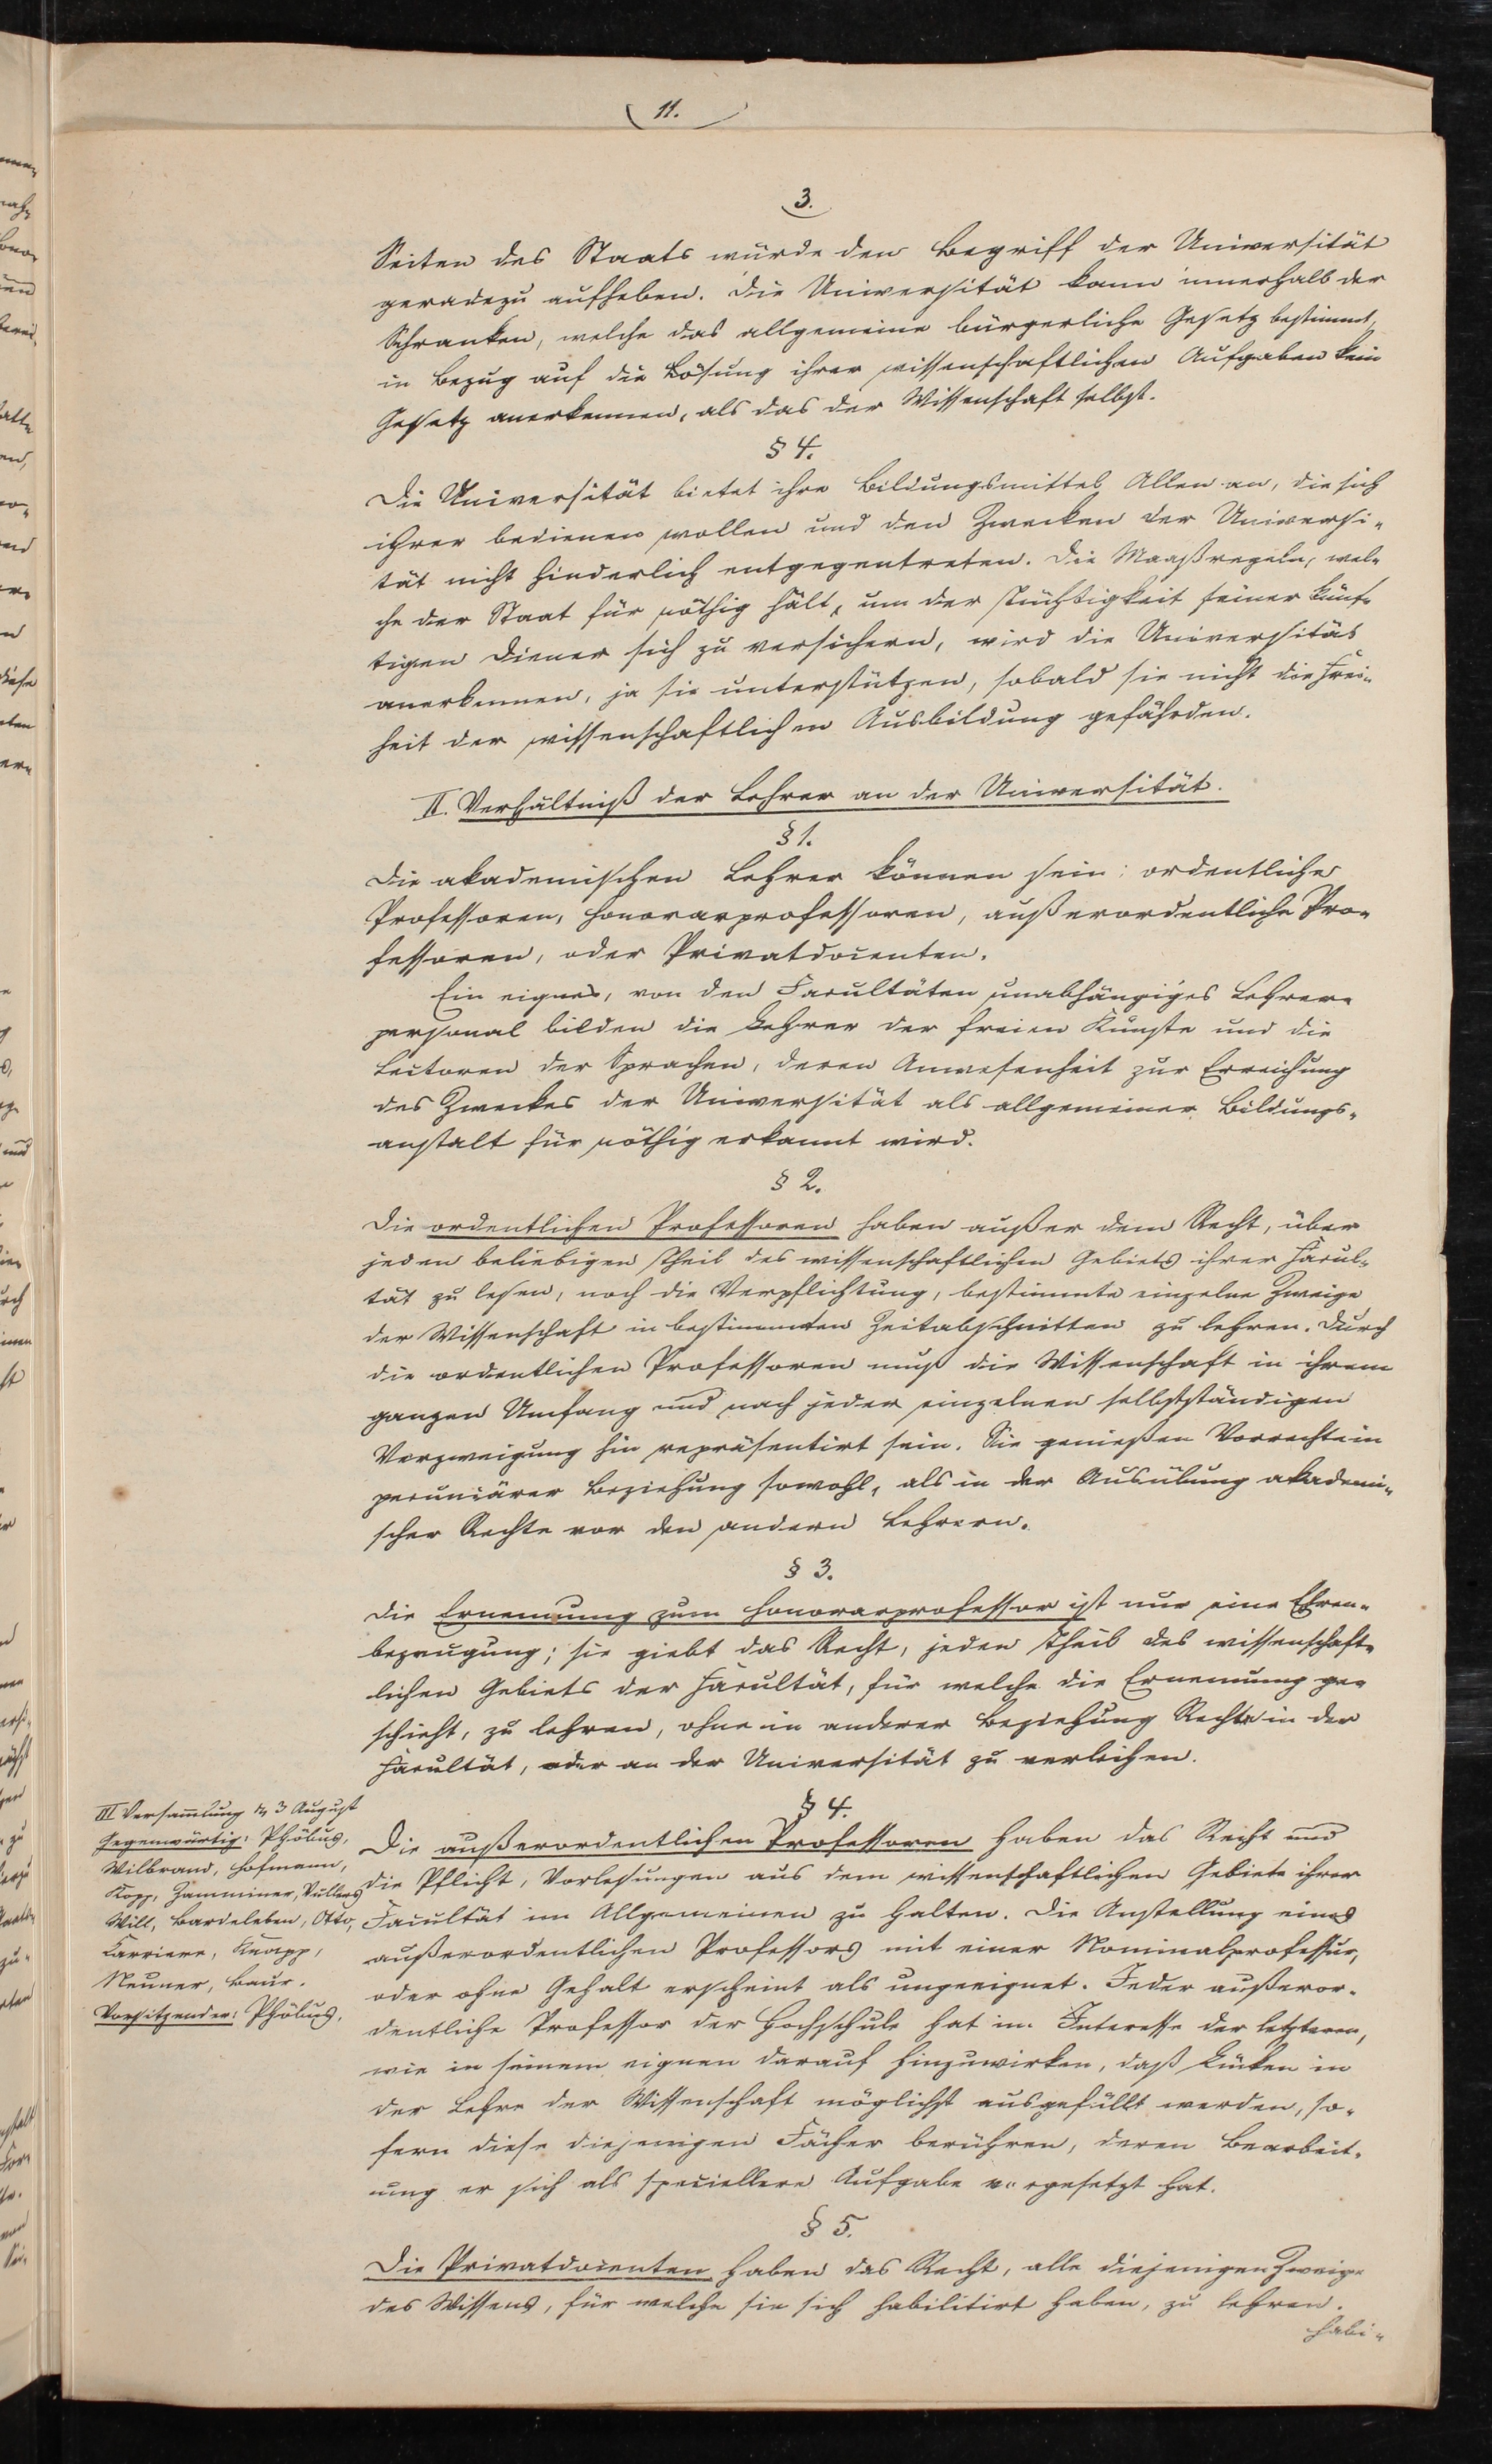 11.
3.
Seiten des Staats würde den Begriff der Universität
geradezu aufheben. Die Universität kann innerhalb der
Schranken, welche das allgemeine bürgerliche Gesetz bestimmt,
in Bezug auf die Lösung ihrer wissenschaftlichen Aufgaben kein
Gesetz anerkennen, als das der Wissenschaft selbst.
§ 4.
Die Universität bietet ihre Bildungsmittel Allen an, die sich
ihrer bedienen wollen und den Zwecken der Universi-
tät nicht hinderlich entgegentreten. Die Maaßregeln, wel-
che der Staat für nöthig hält, um der Tüchtigkeit seiner künf-
tigen Diener sich zu versichern, wird die Universität
anerkennen, ja sie unterstützen, sobald sie nicht die Frei-
heit der wissenschaftlichen Ausbildung gefährden.
II. Verhältniß der Lehrer an der Universität.
§ 1.
Die akademischen Lehrer können sein: ordentliche
Professoren, Honorarprofessoren, außerordentliche Pro-
fessoren, oder Privatdocenten.
Ein eignes, von den Facultäten unabhängiges Lehrer-
personal bilden die Lehrer der freien Künste und die
Lectoren der Sprachen, deren Anwesenheit zur Erreichung
des Zweckes der Universität als allgemeiner Bildungs-
anstalt für nöthig erkannt wird.
§ 2.
Die ordentlichen Professoren haben außer dem Recht, über
jeden beliebigen Theil des wissenschaftlichen Gebiets ihrer Facul-
tät zu lesen, noch die Verpflichtung, bestimmte einzelne Zweige
der Wissenschaft in bestimmten Zeitabschnitten zu lehren. Durch
die ordentlichen Professoren muß die Wissenschaft in ihrem
ganzen Umfang und nach jeder einzelnen selbstständigen
Verzweigung hin repräsentirt sein. Sie genießen Vorrechte in
pecuniärer Beziehung sowohl, als in der Ausübung akademi-
scher Rechte vor den andern Lehrern.
§ 3.
Die Ernennung zum Honorarprofessor ist nur eine Ehren-
bezeugung; sie giebt das Recht, jeden Theil des wissenschaft-
lichen Gebiets der Facultät, für welche die Ernennung ge-
schieht, zu lehren, ohne in anderer Beziehung Rechte in der
Facultät, oder an der Universität zu verleihen.
§ 4.
III Versammlung 3 August
Gegenwärtig: Phöbus,
Wilbrand, Hofmann,
Kopp, Zamminer, Vullers
Will, Bardeleben, Otto,
Carriere, Knapp,
Neuner, Baur.
Vorsitzender: Phöbus.
Die außerordentlichen Professoren haben das Recht und
die Pflicht, Vorlesungen aus dem wissenschaftlichen Gebiete ihrer
Facultät im Allgemeinen zu halten. Die Anstellung eines
außerordentlichen Professors mit einer Nominalprofessur,
oder ohne Gehalt erscheint als ungeeignet. Jeder außeror-
dentliche Professor der Hochschule hat im Interesse der letzteren,
wie in seinem eignen darauf hinzuwirken, daß Lücken in
der Lehre der Wissenschaft möglichst ausgefüllt werden, so-
fern diese diejenigen Fächer berühren, deren Bearbeit-
ung er sich als speciellere Aufgabe vorgesetzt hat.
§ 5.
Die Privatdocenten haben das Recht, alle diejenigen Zweige
des Wissens, für welche sie sich habilitirt haben, zu lehren.
Habi-